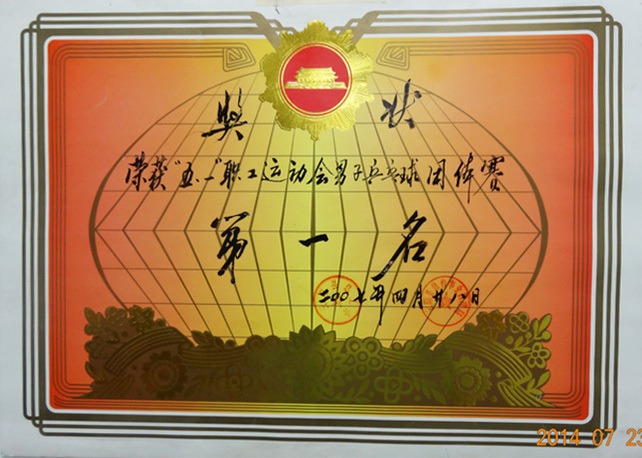 奖状
荣获“五一”职工运动会男子乒乓球团体赛
第一名
二00七年四月廿八日
2014 07 23